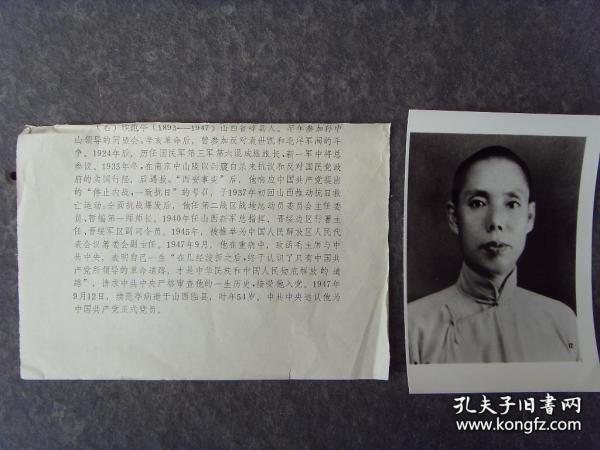 （右）续范亭（1893——1947）山西省崞县人，早年参加孙中
山领导的同盟会。辛亥革命后，曾参加反对袁世凯和北洋军阀的斗
争。1924年后，历任国民军第三军第六混成旅旅长，新一军中将总
参议。1935年冬，在南京中山陵以剖腹自杀来抗议和反对国民党政
府的卖国行径，后遇救。“西安事变”后，他响应中国共产党提出
的“停止内战，一致抗日”的号召，于1937年初回山西推动抗日救
亡运动。全面抗战爆发后，他任第二战区战地总动员委员会主任委
员，暂编第一师师长。1940年任山西新军总指挥，晋绥边区行署主
任，晋绥军区副司令员。1945年，被推举为中国人民解放区人民代
表会议筹委会副主任。1947年9月，他在重病中，致函毛主席与中
共中央，表明自己一生“在几经波折之后，终于认识了只有中国共
产党所领导的革命道路，才是中华民族和中国人民彻底解放的道
路”，请求中共中央严格审查他的一生历史，接受他入党。1947年
9月12日，续范亭病逝于山西临县，时年54岁。中共中央追认他为
中国共产党正式党员。
12
孔夫子旧书网
www.kongfz.com